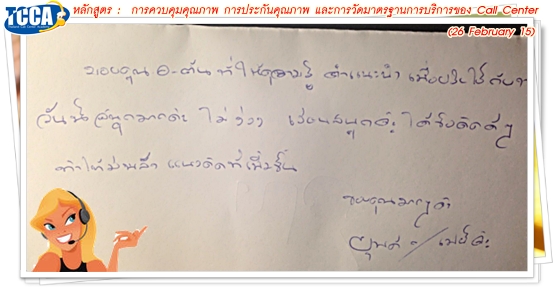 TCCA
หลักสูตร : การควบคุมคุณภาพ การประกันคุณภาพ และการวัดมาตรฐานการบริการของ Call Center
(26 February 15)
ขอบคุณ อ.ต้น ที่ให้ความรู้ คำแนะนำ เพื่อปรับใช้กับ
วันนี้สนุกมากค่ะ ไม่ง่วง เรียนสนุกค่ะ ได้ข้อคิดดีๆ
ทำให้ แนวคิดที่เพิ่มขึ้น
ขอบคุณมากๆ ค่ะ